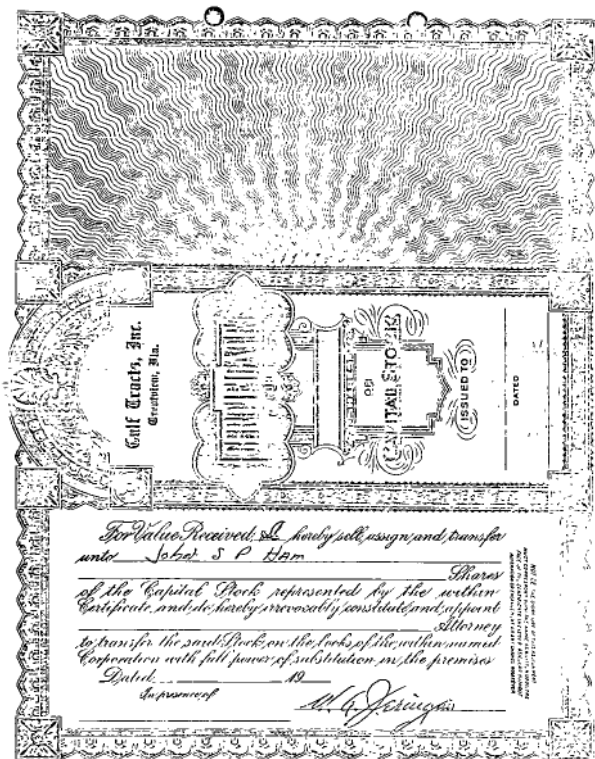 Gulf Tracts, Inc.
Crestview, Fla.
CERTIFICATE
OF
CAPITAL STOCK
ISSUED TO
DATED
For Value Received, I hereby sell, assign, and transfer
unto John S P Ham
Shares
of the Capital Stock represented by the within
Certificate, and do hereby irrevocably constitute and appoint
Attorney
to transfer the said Stock on the books of the within named
Corporation with full power of substitution in the premises
Dated 19
In presence of